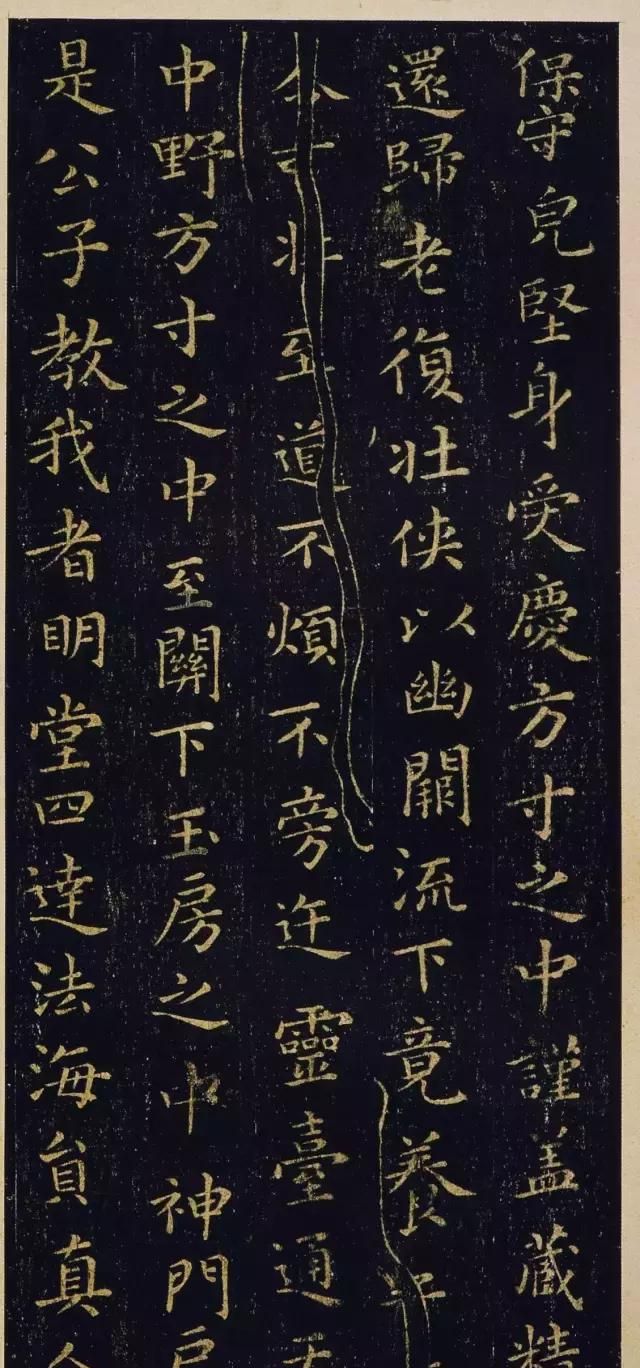 保守皃堅身受慶方寸之中謹盖藏精
還歸老復壯俠以幽闕流下竟養子
令可壯至道不煩不旁迕靈臺通天
中野方寸之中至關下玉房之中神門戶
是公子教我者明堂四達法海員真人